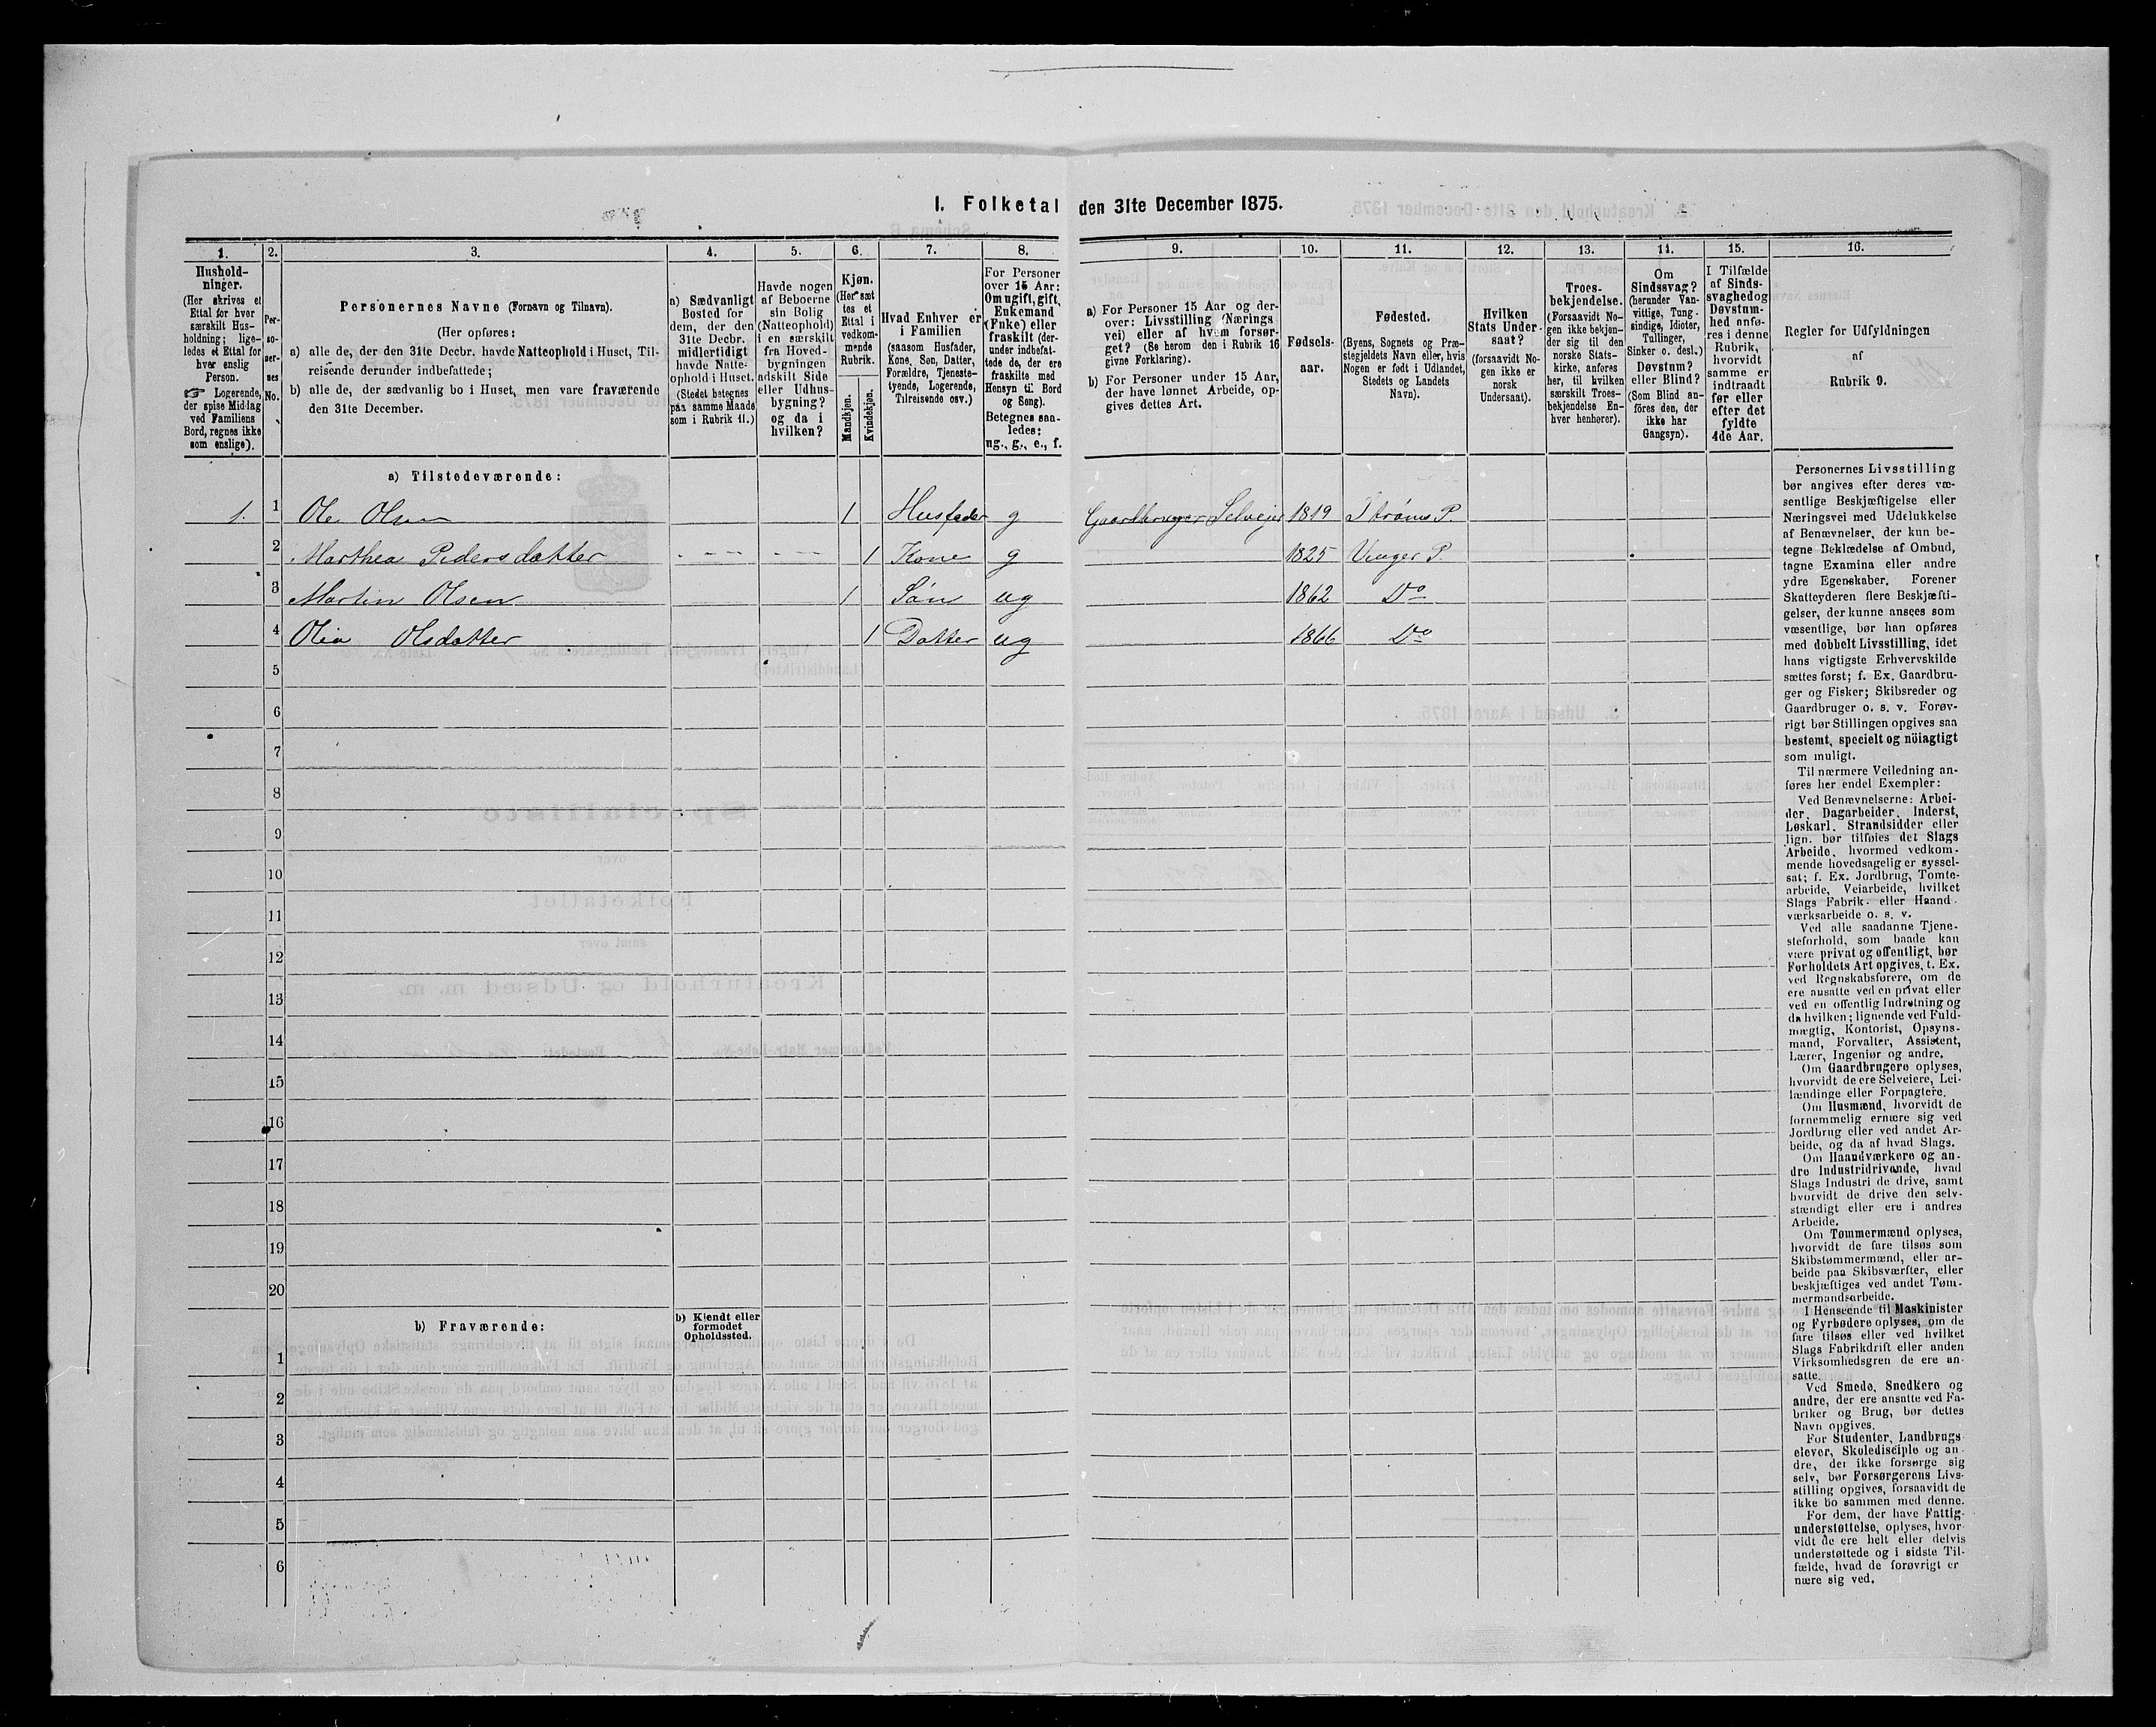 I. Folketal den 31te December 1875.
1.
Hushold-
ninger.
(Her skrives et
Ettal for hver
særskilt Hus-
holdning; lige-
ledes et Ettal for
hver enslig
Person.
☞ Logerende,
der spise Middag
ved Familiens
Bord, regnes ikke
som enslige).
2.
Per-
so-
ner-
nes
No.
3.
Personernes Navne (Fornavn og Tilnavn).
(Her opføres:
a) alle de, der den 31te Decbr. havde Natteophold i Huset, Til-
reisende derunder indbefattede;
b) alle de, der sædvanlig bo i Huset, men vare fraværende
den 31te December.
4.
a) Sædvanligt
Bosted for
dem, der den
31te Decbr.
midlertidigt
havde Natte-
ophold i Huset.
(Stedet betegnes
paa samme Maade
som i Rubrik 11.)
5.
Havde nogen
af Beboerne
sin Bolig
(Natteophold)
i en særskilt
fra Hoved-
bygningen
adskilt Side
eller Udhus-
bygning?
og da i
hvilken?
6.
Kjøn.
(Her sæt
tes et
Ettal i
vedkom-
mende
Rubrik.
Mandkjøn.
Kvindekjøn.
7.
Hvad Enhver er
i Familien
(saasom Husfader,
Kone, Søn, Datter,
Forældre, Tjeneste-
tyende, Logerende,
Tilreisende osv.)
8.
For Personer
over 15 Aar:
Om ugift, gift,
Enkemand
(Enke) eller
fraskilt (der-
under indbefat-
tede de, der ere
fraskilte med
Hensyn til Bord
og Seng).
Betegnes saa-
ledes:
ug., g., e., f.
9.
a) For Personer 15 Aar og der-
over: Livsstilling (Nærings
vei) eller af hvem forsør-
get? (Se herom den i Rubrik 16
givne Forklaring).
b) For Personer under 15 Aar,
der have lønnet Arbeide, op-
gives dettes Art.
10.
Fødsels-
aar.
11.
Fødested.
(Byens, Sognets og Præ-
stegjeldets Navn eller, hvis
Nogen er født i Udlandet,
Stedets og Landets
Navn).
12.
Hvilken
Stats Under-
saat?
(forsaavidt No-
gen ikke er
norsk
Undersaat).
13.
Troes-
bekjendelse.
(Forsaavidt No-
gen ikke bekjen-
der sig til den
norske Stats-
kirke, anføres
her, til hvilken
særskilt Troes-
bekjendelse En-
hver henhører).
14.
Om
Sindssvag?
(herunder Van-
vittige, Tung-
sindige, Idioter,
Tullinger,
Sinker o. desl.)
Døvstum?
eller Blind?
(Som Blind an-
føres den, der
ikke har
Gangsyn).
15.
I Tilfælde
af Sinds-
svaghed og
Døvstum-
hed anfø-
res i denne
Rubrik,
hvorvidt
samme er
indtraadt
før eller
efter det
fyldte
4de Aar.
16.
Regler for Udfyldningen
af
Rubrik 9.
a) Tilstedeværende:
1. 1 Ole Olsen 1 Husfader g Gaardbruger Selvejer 1819 Strøms P.
2 Marthea Pedersdatter 1 Kone g 1825 Vinger P.
3 Martin Olsen 1 Søn ug 1862 Do
4 Olia Olsdatter 1 Datter ug 1866 Do
5
6
7
8
9
10
11
12
13
14
15
16
17
18
19
20
b) Fraværende:
b) Kjendt eller
formodet
Opholdssted.
1
2
3
4
5
6
Personernes Livsstilling
bør angives efter deres væ-
sentlige Beskjæftigelse eller
Næringsvei med Udelukkelse
af Benævnelser, der kun be-
tegne Beklædelse af Ombud,
tagne Examina eller andre
ydre Egenskaber. Forener
Skatteyderen flere Beskjæfti-
gelser, der kunne ansees som
væsentlige, bør han opføres
med dobbelt Livsstilling, idet
hans vigtigste Erhvervskilde
sættes først; f. Ex. Gaardbru-
ger og Fisker; Skibsreder og
Gaardbruger o. s. v. Forøv-
rigt bør Stillingen opgives saa
bestemt, specielt og nöiagtigt
som muligt.
Til nærmere Veiledning an-
føres her endel Exempler:
Ved Benævnelserne: Arbei-
der, Dagarbeider, Inderst,
Løskarl, Strandsidder eller
lign. bør tilføies det Slags
Arbeide, hvormed vedkom-
mende hovedsagelig er syssel-
sat; f. Ex. Jordbrug, Tomte-
arbeide, Veiarbeide, hvilket
Slags Fabrik- eller Haand-
værksarbeide o. s. v.
Ved alle saadanne Tjene-
steforhold, som baade kan
være privat og offentligt, bør
Forholdets Art opgives, t. Ex.
ved Regnskabsførere, om de
ere ansatte ved en privat eller
ved en offentlig Indretning og
da hvilken; lignende ved Fuld-
mægtig, Kontorist, Opsyns-
mand, Forvalter, Assistent,
Lærer, Ingeniør og andre.
Om Gaardbrugere oplyses,
hvorvidt de ere Selveiere, Lei-
lændinge eller Forpagtere.
Om Husmænd, hvorvidt de
fornemmelig ernære sig ved
Jordbrug eller ved andet Ar-
beide, og da af hvad Slags.
Om Haandværkere og an-
dre Industridrivende, hvad
Slags Industri de drive, samt
hvorvidt de drive den selv-
stændigt eller ere i andres
Arbeide.
Om Tømmermænd oplyses,
hvorvidt de fare tilsøs som
Skibstømmermænd, eller ar-
beide paa Skibsværfter, eller
beskjæftiges ved andet Tøm-
mermandsarbeide.
I Henseende til Maskinister
og Fyrbødere oplyses, om de
fare tilsøs eller ved hvilket
Slags Fabrikdrift eller anden
Virksomhedsgren de ere an-
satte.
Ved Smede, Snedkere og
andre, der ere ansatte ved Fa-
briker og Brug, bør dettes
Navn opgives.
For Studenter, Landbrugs
elever, Skoledisciple og an-
dre, der ikke forsørge sig
selv, bør Forsørgerens Livs-
stilling opgives, forsaavidt de
ikke bo sammen med denne.
For dem, der have Fattig-
understøttelse, oplyses, hvor-
vidt de ere helt eller delvis
understøttede og i sidste Til-
fælde, hvad de forøvrigt er
nære sig ved.